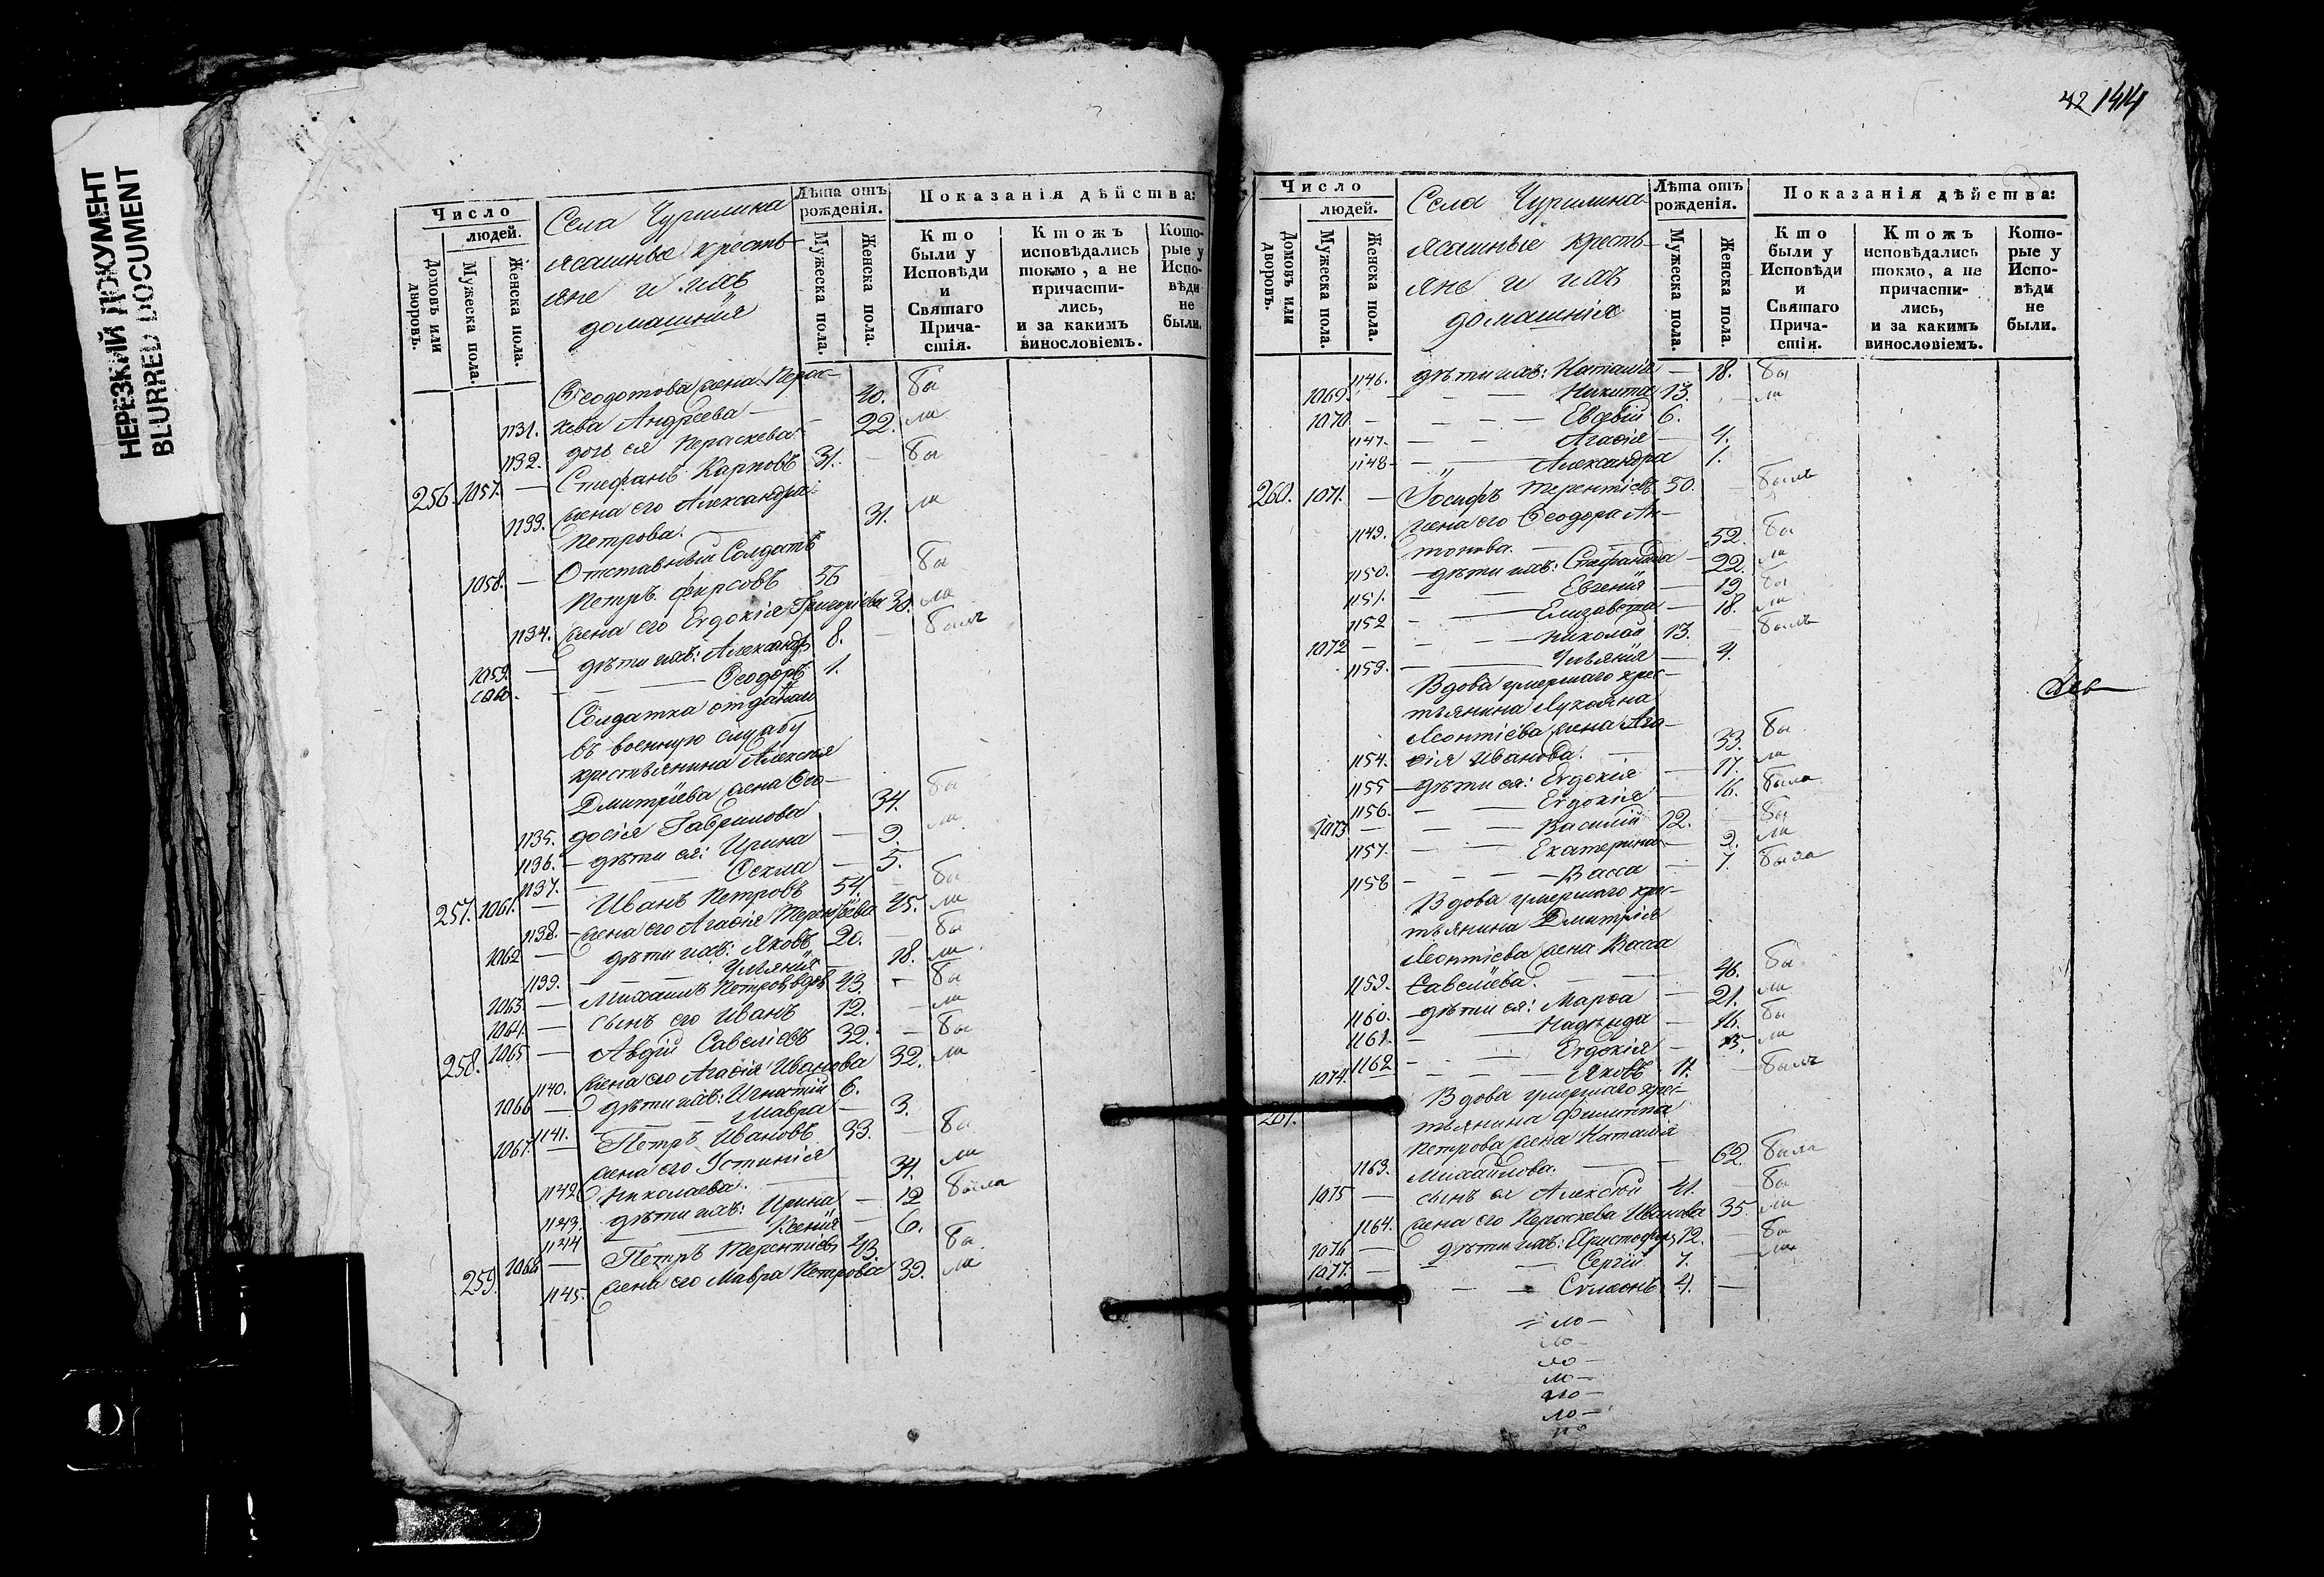 НЕРЕЗКИЙ ДОКУМЕНТ
BLURRED DOCUMENT
Число
людей.
Домовъ или дворовъ.
Мужеска пола.
Женска пола.
Села Чурилина
ясашные кресть-
яне и ихъ
домашнія
Лѣта отъ рожденія.
Мужеска пола.
Женска пола.
Показанія дѣйства:
Кто были у Исповѣди и Святаго Прича-стія.
Ктожъ исповѣдались токмо, а не причасти-лись, и за какимъ винословіемъ.
Кото-рые у Испо-вѣди не были.
Ѳеодотова жена Парас-
1131. кева Андреева — 40. бы
1132. дочь ея Параскева — 22. ли
256. 1057. — Стефанъ Карповъ 31. — бы
1133. жена его Александра
Петрова. — 31. ли
Отставный Солдатъ
1058. — Петръ Фирсовъ 56 — бы
1134. жена его Евдокія Григоріева 30. ли
1059. — дѣти ихъ: Александръ 8. — былъ
1060. — Ѳеодоръ 1.
Солдатка отданнаго
въ военную службу
крестьянина Алексѣя
Дмитріева жена Ѳео-
1135. досія Гаврилова 34. бы
1136. — дѣти ея: Ирина — 9. ли
1137. — Ѳекла — 5.
257. 1061. — Иванъ Петровъ 54. — бы
1138. — жена его Агаѳія Терентіева 45. ли
1062 — дѣти ихъ: Яковъ 20. — бы
1139. — Ульянія — 18. ли
1063. — Михаилъ Петровъ вдовъ 43. — бы
1064. — сынъ его Иванъ 12. — ли
258. 1065 — Авдій Савеліевъ 32. — бы
1140. жена его Агаѳія Иванова 32. ли
1066 — дѣти ихъ: Игнатій 6.
1141. — Мавра — 3.
1067. — Петръ Ивановъ 33. — бы
жена его Устинія
1142 Николаева. — 34. ли
1143. дѣти ихъ: Ирина — 12 была
1144 — Ксенія — 6.
259. 1068 — Петръ Терентіевъ 43. бы
1145. жена его Мавра Петрова 39. ли
42 144
Число
людей.
Домовъ или дворовъ.
Мужеска пола.
Женска пола.
Села Чурилина
ясашные кресть-
яне и ихъ
домашнія
Лѣта отъ рожденія.
Мужеска пола.
Женска пола.
Показанія дѣйства:
Кто были у Исповѣди и Святаго Прича-стія.
Ктожъ исповѣдались токмо, а не причасти-лись, и за какимъ винословіемъ.
Кото-рые у Испо-вѣди не были.
1146. дѣти ихъ: Наталія — 18. бы
1069. — Никита 13. — ли
1070 — Евсевій 6.
1147. — Агаѳія — 4.
1148 — Александра 1.
260. 1071. — Іосифъ Терентіевъ 50. — былъ
1149. жена его Ѳеодора Ан-
тонова. — 52. бы
1150. — дѣти ихъ: Стефанида — 22. ли
1151. — Евгенія — 19. бы
1152 — Елизавета — 18. ли
1072 — Николай 13. — былъ
1153. — Ульянія — 4.
Вдова умершаго крес-
тьянина Лукояна
Леонтіева жена Ага-
1154. ѳія Иванова. — 33. бы
1155 — дѣти ея: Евдокія — 17. ли
1156. — Евдокія — 16. была
1073 — Василій 12. — бы
1157. — Екатерина — 9. ли
1158 — Васса — 7. была
Вдова умершаго крес-
тьянина Дмитрія
Леонтіева жена Васса
1159. Савеліева. — 46. бы
1160. — дѣти ея: Марѳа — 21. ли
1161. — Надежда — 16. бы
1162 — Евдокія — 15. ли
1074. — Яковъ 11. — былъ
261. Вдова умершаго крес-
тьянина Филиппа
Петрова жена Наталія
1163. Михайлова. — 62. была
1075 — сынъ ея Алексѣй 41. — бы
1164. жена его Параскева Иванова 35. ли
1076 — дѣти ихъ: Христофоръ 12. — бы
1077. — Сергій 7. — ли
— Сѵмеонъ 4. —